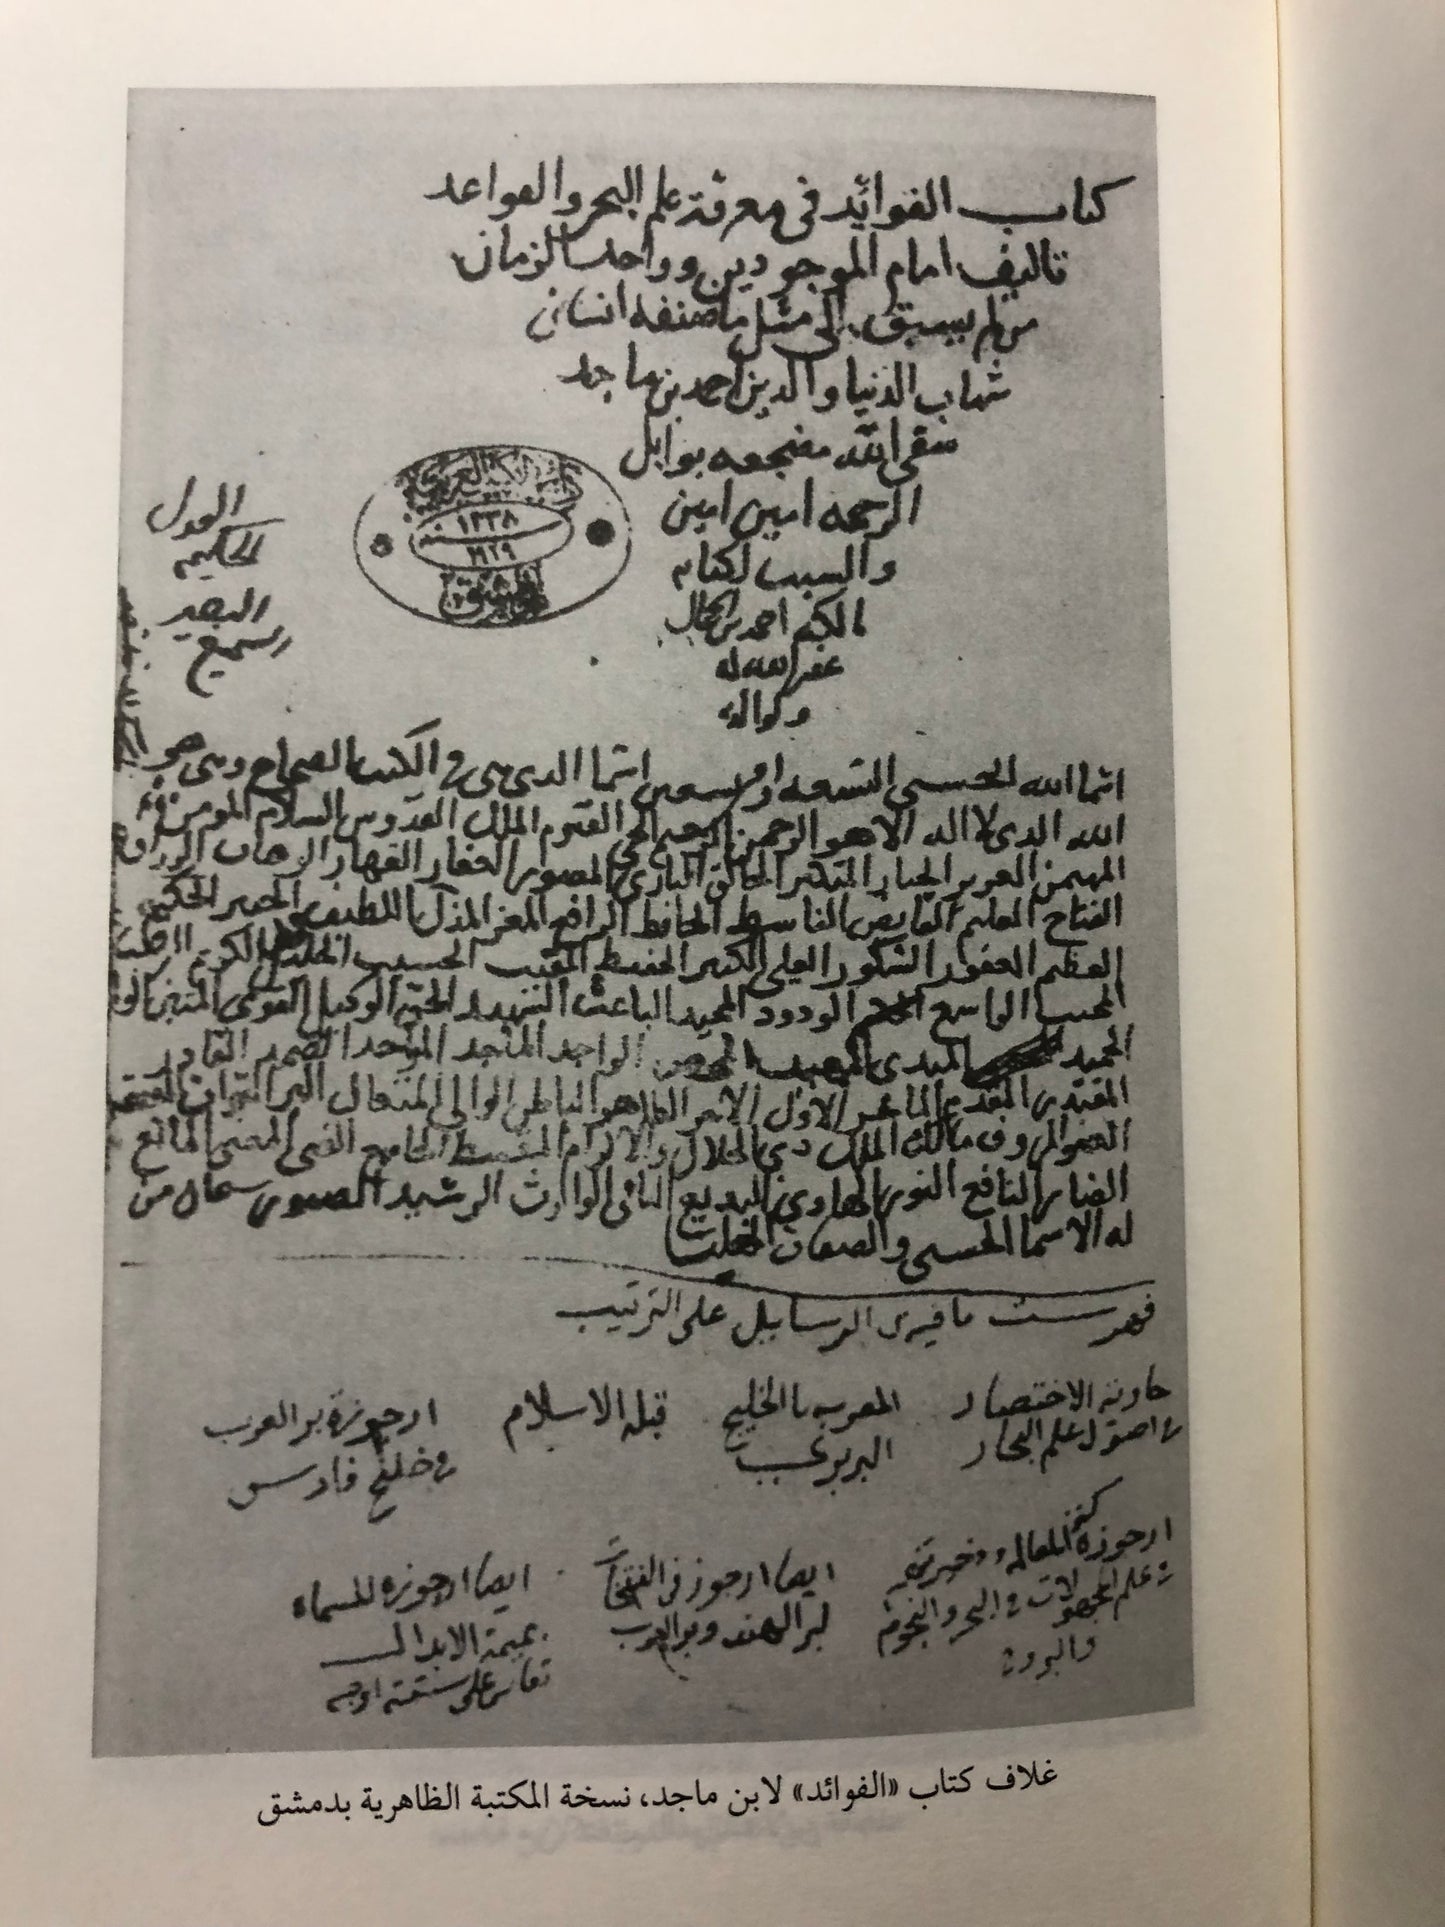 كتاب الفوائد في معرفة علم البحر والقواعد
تاليف امام الموجودين وواحد الزمان
من لم يسبق الى مثل ما صنفه انسان
شهاب الدنيا والدين احمد بن ماجد
سقى الله مضجعه بوابل
الرحمه امين امين
والسبب لكتابه
احمد بن
غفر الله له
ولوالديه
العدل
الحكيم
البصير
السميع
١٣٣٨
١٩١٩
دمشق
اسما الله الحسنى التسعه وتسعين اسما الدي هي في الكتب الصحاح وهي هو
الله الدى لا اله الا هو الرحمن الرحيم الحي القيوم الملك القدوس السلام المومن
المهيمن العزيز الجبار المتكبر الخالق البارى المصور الغفار القهار الوهاب الرزاق
الفتاح العليم القابض الباسط الخافظ الرافع المعز المذل اللطيف الخبير الحكيم
العظيم الغفور الشكور العلي الكبير الحفيظ المقيت الحسيب الجليل الكريم
المجيب الواسع الودود المجيد الباعث الشهيد الحق الوكيل القوى المتين
الحميد المبدى المعيد الواجد الماجد الواحد الصمد القادر
المقتدر المقدم الماخر الاول الاخر الظاهر الباطن الوالى المتعال البر التواب المنتقم
العفو الروف مالك الملك دي الجلال والاكرام المقسط الجامع الغني المغني المانع
الضار النافع النور الهادي البديع الباقي الوارث الرشيد الصبور سبحان من
له الاسما الحسنى والصفات
فهرست ما في الرسايل على الترتيب
حاوية الاختصار
في اصول علم البحار
المعربه بالخليج
البربري
قبلة الاسلام
ارجوزة بر العرب
في خليج فارس
ارجوزة كنز المعالمه وذخيرتهم
في علم المجهولات في البحر والنجوم
والبروج
ايضا ارجوزة في النتخات
لبر الهند وبر العرب
ايضا ارجوزة المسماه
بميمية الابدال
على ستة اوجه
غلاف كتاب «الفوائد» لابن ماجد، نسخة المكتبة الظاهرية بدمشق